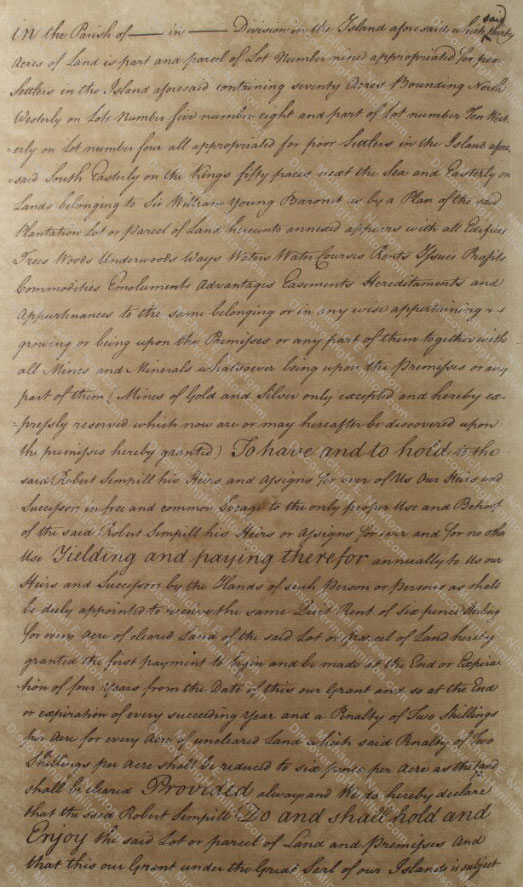 in the Parish of —— in —— Division in the Island aforesaid which said thirty
Acres of Land is part and parcel of Lot Number nine appropriated for poor
Settlers in the Island aforesaid containing seventy Acres Bounding North
Westerly on Lots Number five number eight and part of Lot number Ten West
erly on Lot number four all appropriated for poor Settlers in the Island afore
-said South Easterly on the Kings fifty paces next the Sea and Easterly on
Lands belonging to Sir William Young Baronet as by a Plan of the said
Plantation Lot or Parcel of Land hereunto annexed appears with all Edifices
Trees Woods Underwoods Ways Waters Water Courses Rents Issues Profits
Commodities Emoluments Advantages Easments Hereditaments and
Appurtenances to the same belonging or in any wise appertaining
growing or being upon the Premisses or any part of them together with
all Mines and Minerals whatsoever being upon the Premisses or any
part of them (Mines of Gold and Silver only excepted and hereby ex-
-pressly reserved which now are or may hereafter be discovered upon
the premisses hereby granted) To have and to hold to the
said Robert Sempill his Heirs and Assigns for ever of Us Our Heirs and
Successors in free and common Socage to the only proper Use and Behoof
of the said Robert Sempill his Heirs or Assigns for ever and for no other
Use Yielding and paying therefor annually to Us our
Heirs and Successors by the Hands of such Person or Persons as shall
be duly appointed to receive the same Quit Rent of Six pence Sterling
for every Acre of cleared Land of the said Lot or parcel of Land hereby
granted the first payment to begin and be made at the End or Expira
-tion of four Years from the Date of this our Grant and so at the End
or expiration of every succeeding Year and a Penalty of Two Shillings
per Acre for every Acre of uncleared Land which said Penalty of Two
Shillings per Acre shall be reduced to six pence per Acre as the Land
shall be cleared Provided always and We do hereby declare
that the said Robert Sempill Do and shall hold and
Enjoy the said Lot or parcel of Land and Premisses And
that this our Grant under the Great Seal of our Islands is subject